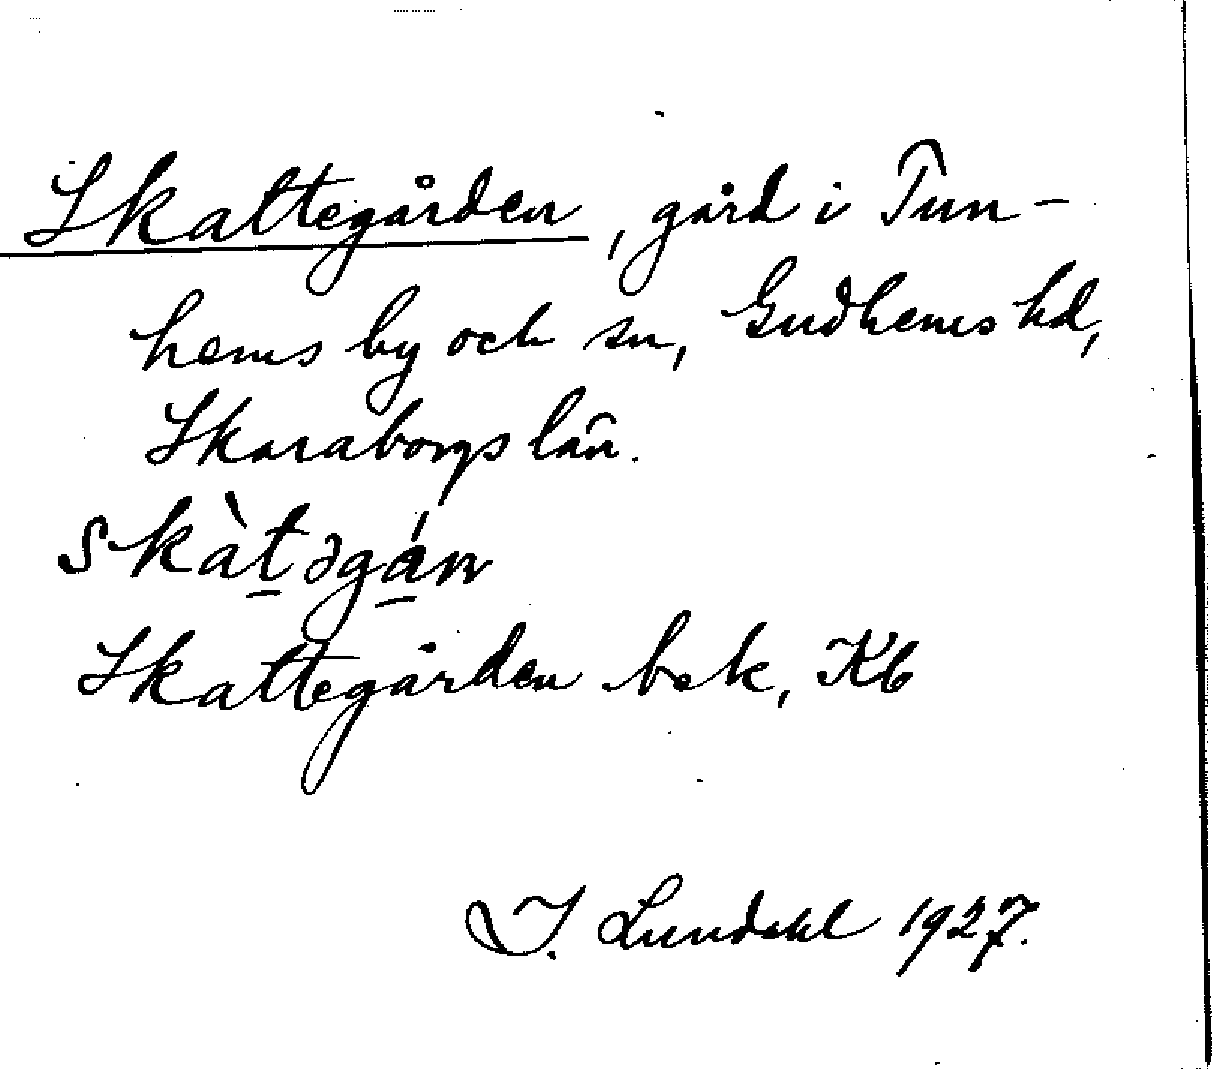 Skattegården, gård i Tun-
hems by och sn, Gudhems hd,
Skaraborgs län.
skàt̠əgá̠n
Skattegården bok, Kb
I. Lundahl 1927.